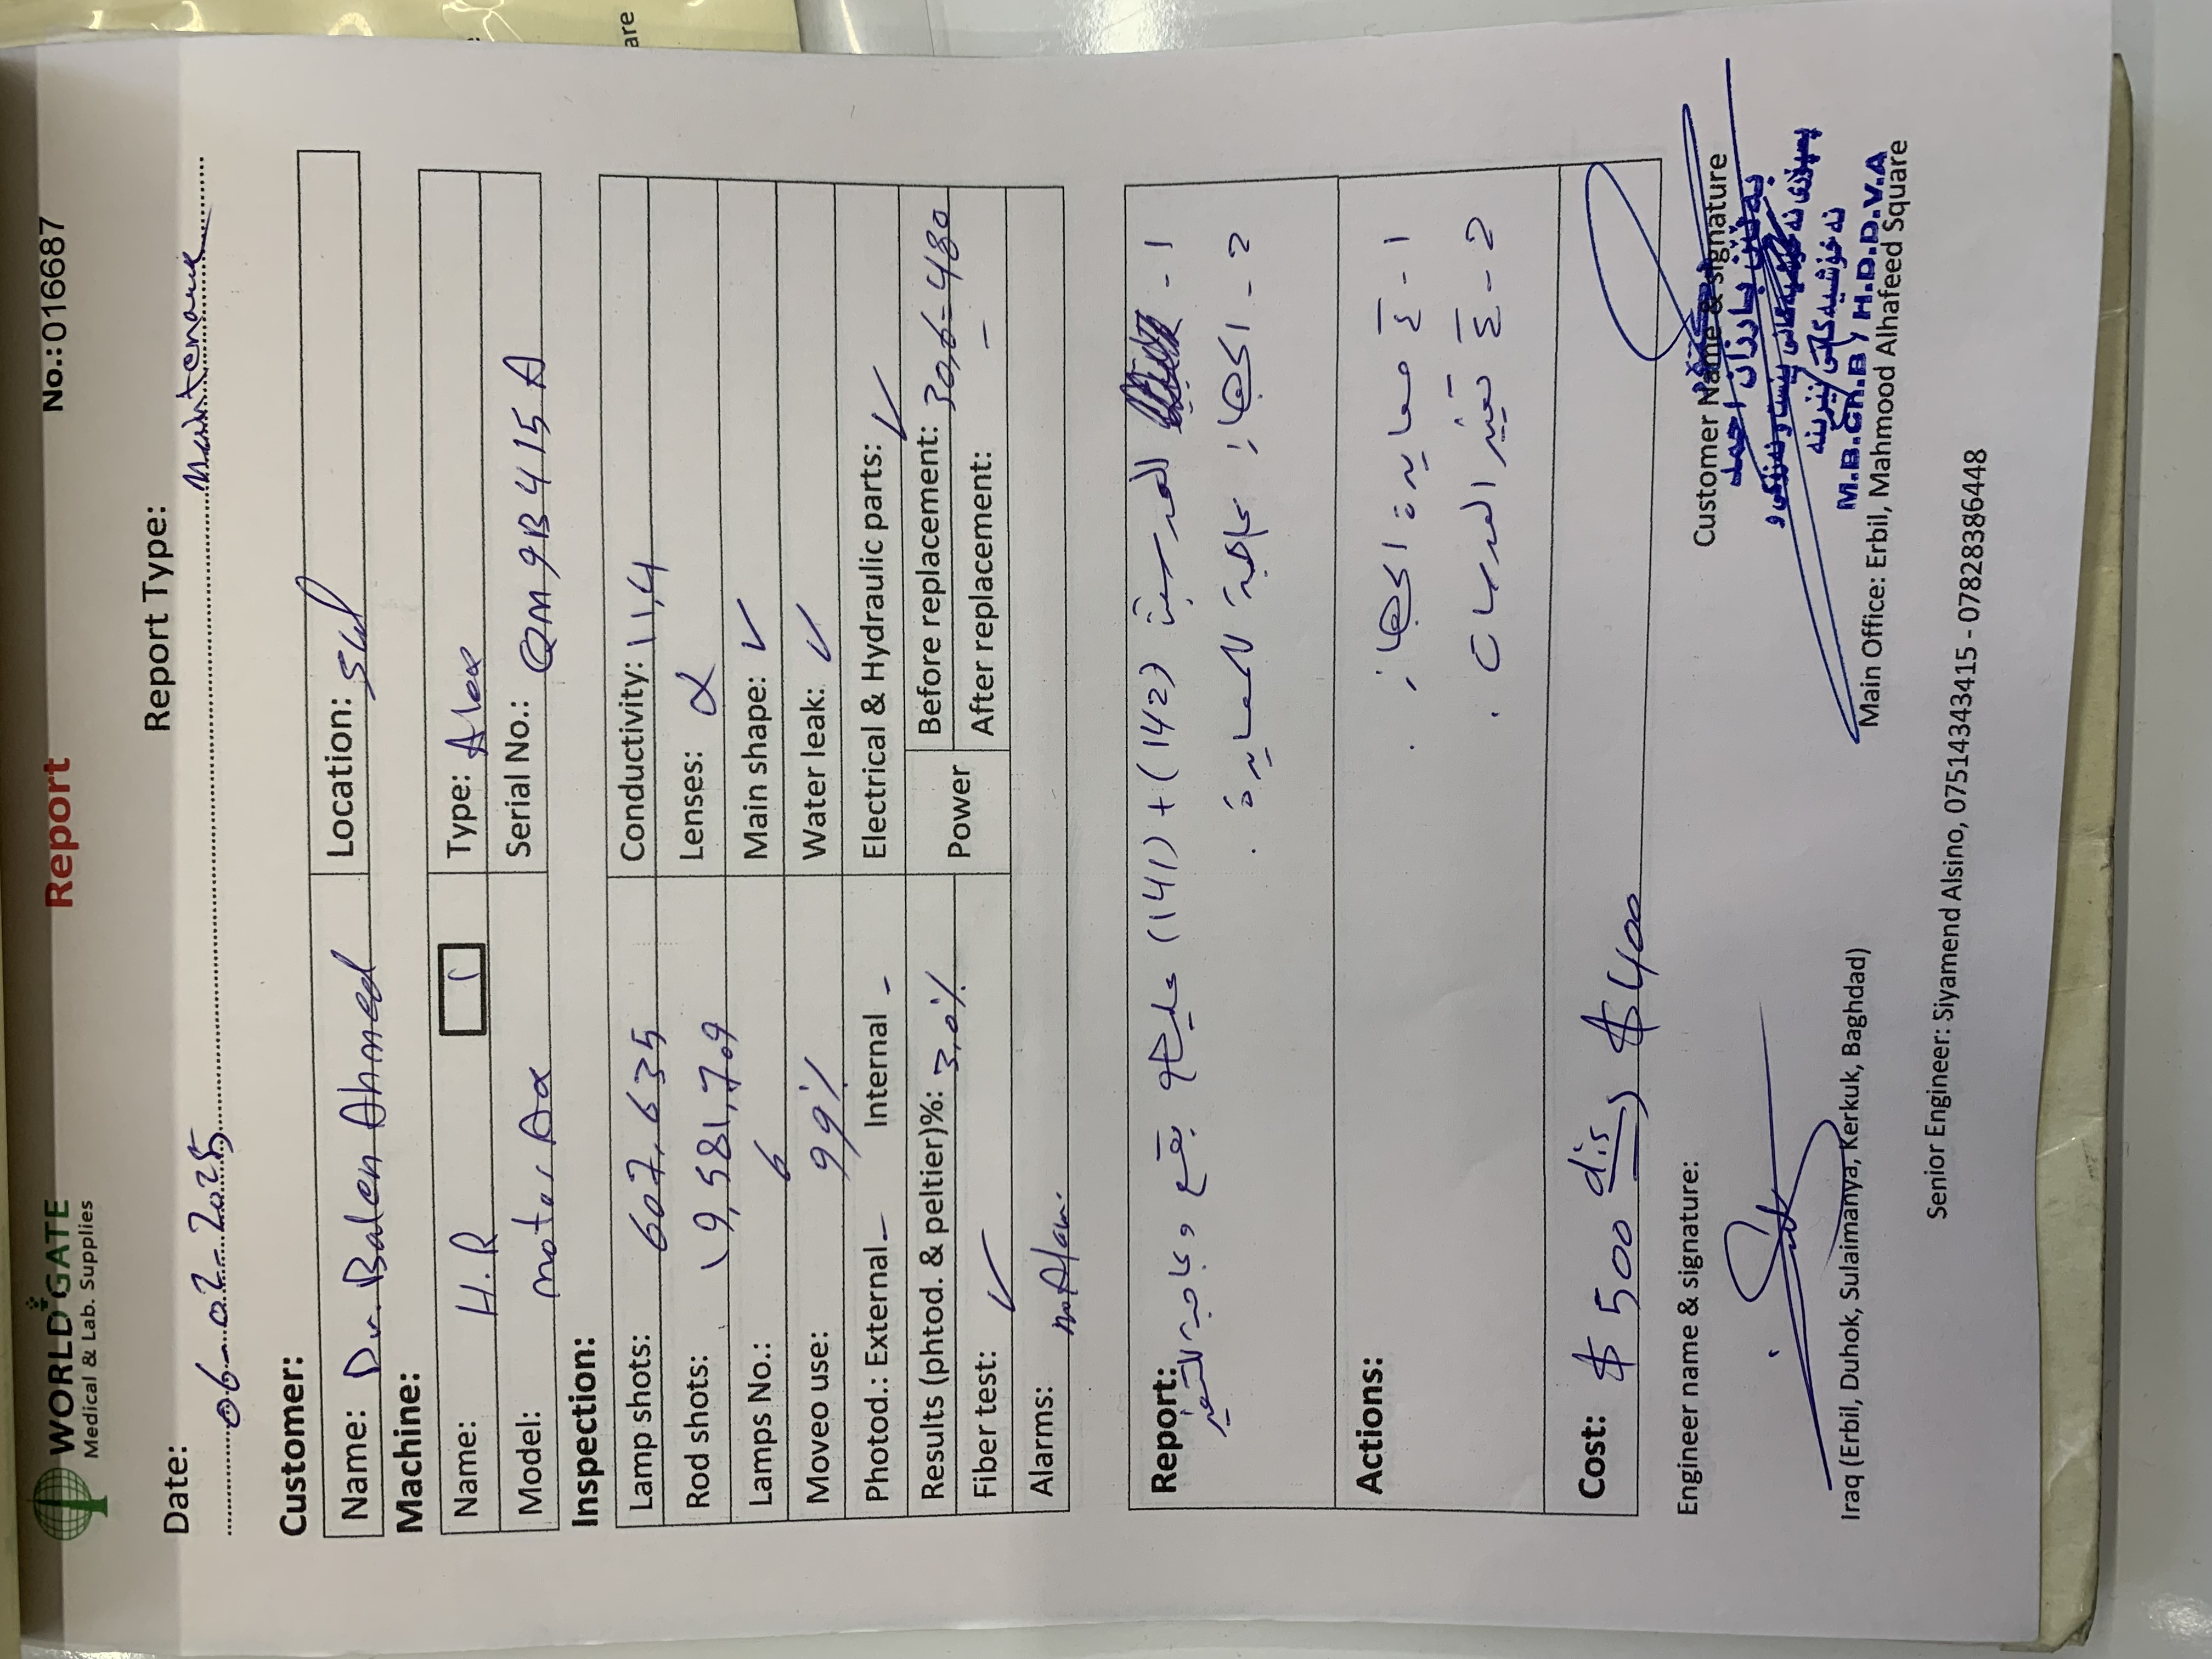 WORLD GATE
Medical & Lab. Supplies
Report
No.:016687
Date: 06-02-2025
Report Type: Maintenance
Customer:
Name: Dr. Balen Ahmed
Location: Sul
Machine:
Name: H.R
Type: Alex
Model: motus AX
Serial No.: QM9B415A
Inspection:
Lamp shots: 607,635
Conductivity: 11,4
Rod shots: 19,581,709
Lenses:
Lamps No.: 6
Main shape: ✓
Moveo use: 99%
Water leak: ✓
Photod.: External - Internal -
Electrical & Hydraulic parts: ✓
Results (phtod. & peltier)%: 3,0%
Power
Before replacement: 30,6-480
Fiber test: ✓
After replacement: -
Alarms: no Alarm.
Report:
1 - العدسة (142) + (141) عليها بقع وبحاجة للتغيير
2 - الجهاز بحاجة للمعايرة.
Actions:
1 - تم معايرة الجهاز.
2 - تم تغيير العدسات.
Cost: $ 500 dis) $ 400
Engineer name & signature:
Customer Name & signature
بەڵێن بارزان احمد
M.B.Ch.B / H.D.D.V.A
Iraq (Erbil, Duhok, Sulaimanya, Kerkuk, Baghdad)
Main Office: Erbil, Mahmood Alhafeed Square
Senior Engineer: Siyamend Alsino, 07514343415 - 07828386448